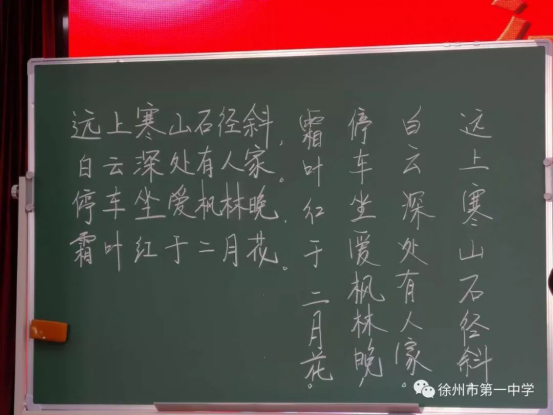 远上寒山石径斜，
白云深处有人家。
停车坐爱枫林晚，
霜叶红于二月花。
远上寒山石径斜
白云深处有人家。
停车坐爱枫林晚，
霜叶红于二月花。
徐州市第一中学